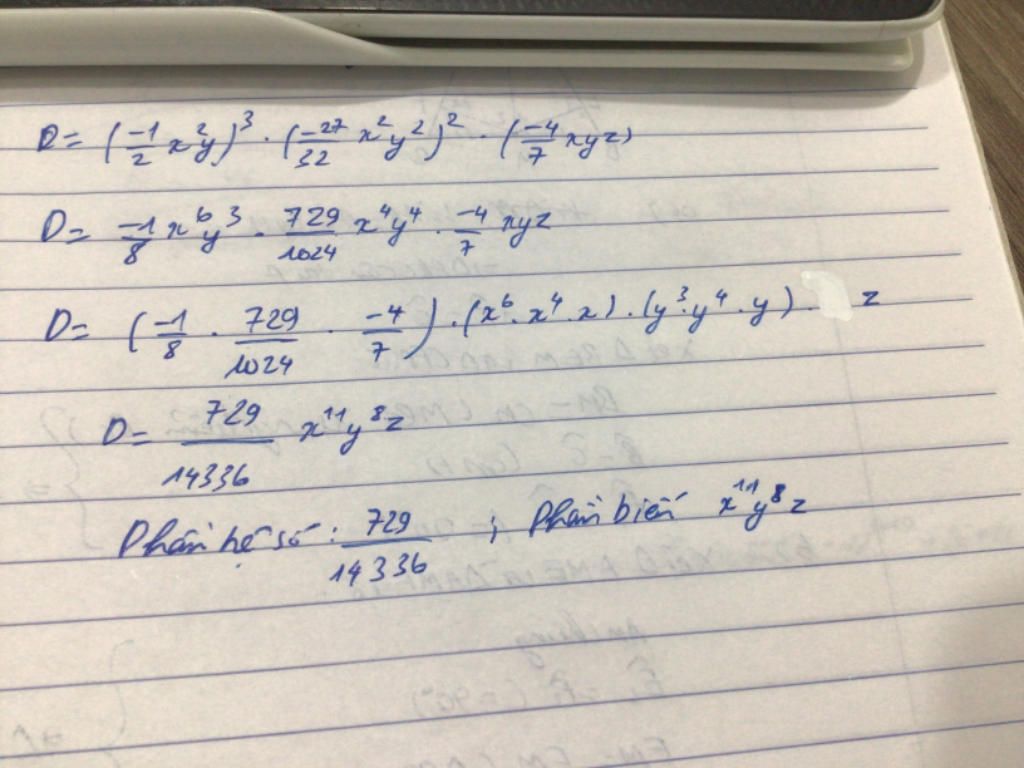 D = (-1/2 x²y)³ . (-27/32 x²y²)² . (-4/7 xyz)
D = -1/8 x⁶y³ . 729/1024 x⁴y⁴ . -4/7 xyz
D = (-1/8 . 729/1024 . -4/7) . (x⁶ . x⁴ . x) . (y³ . y⁴ . y) . z
D = 729/14336 x¹¹y⁸z
Phần hệ số : 729/14336 ; Phần biến x¹¹y⁸z